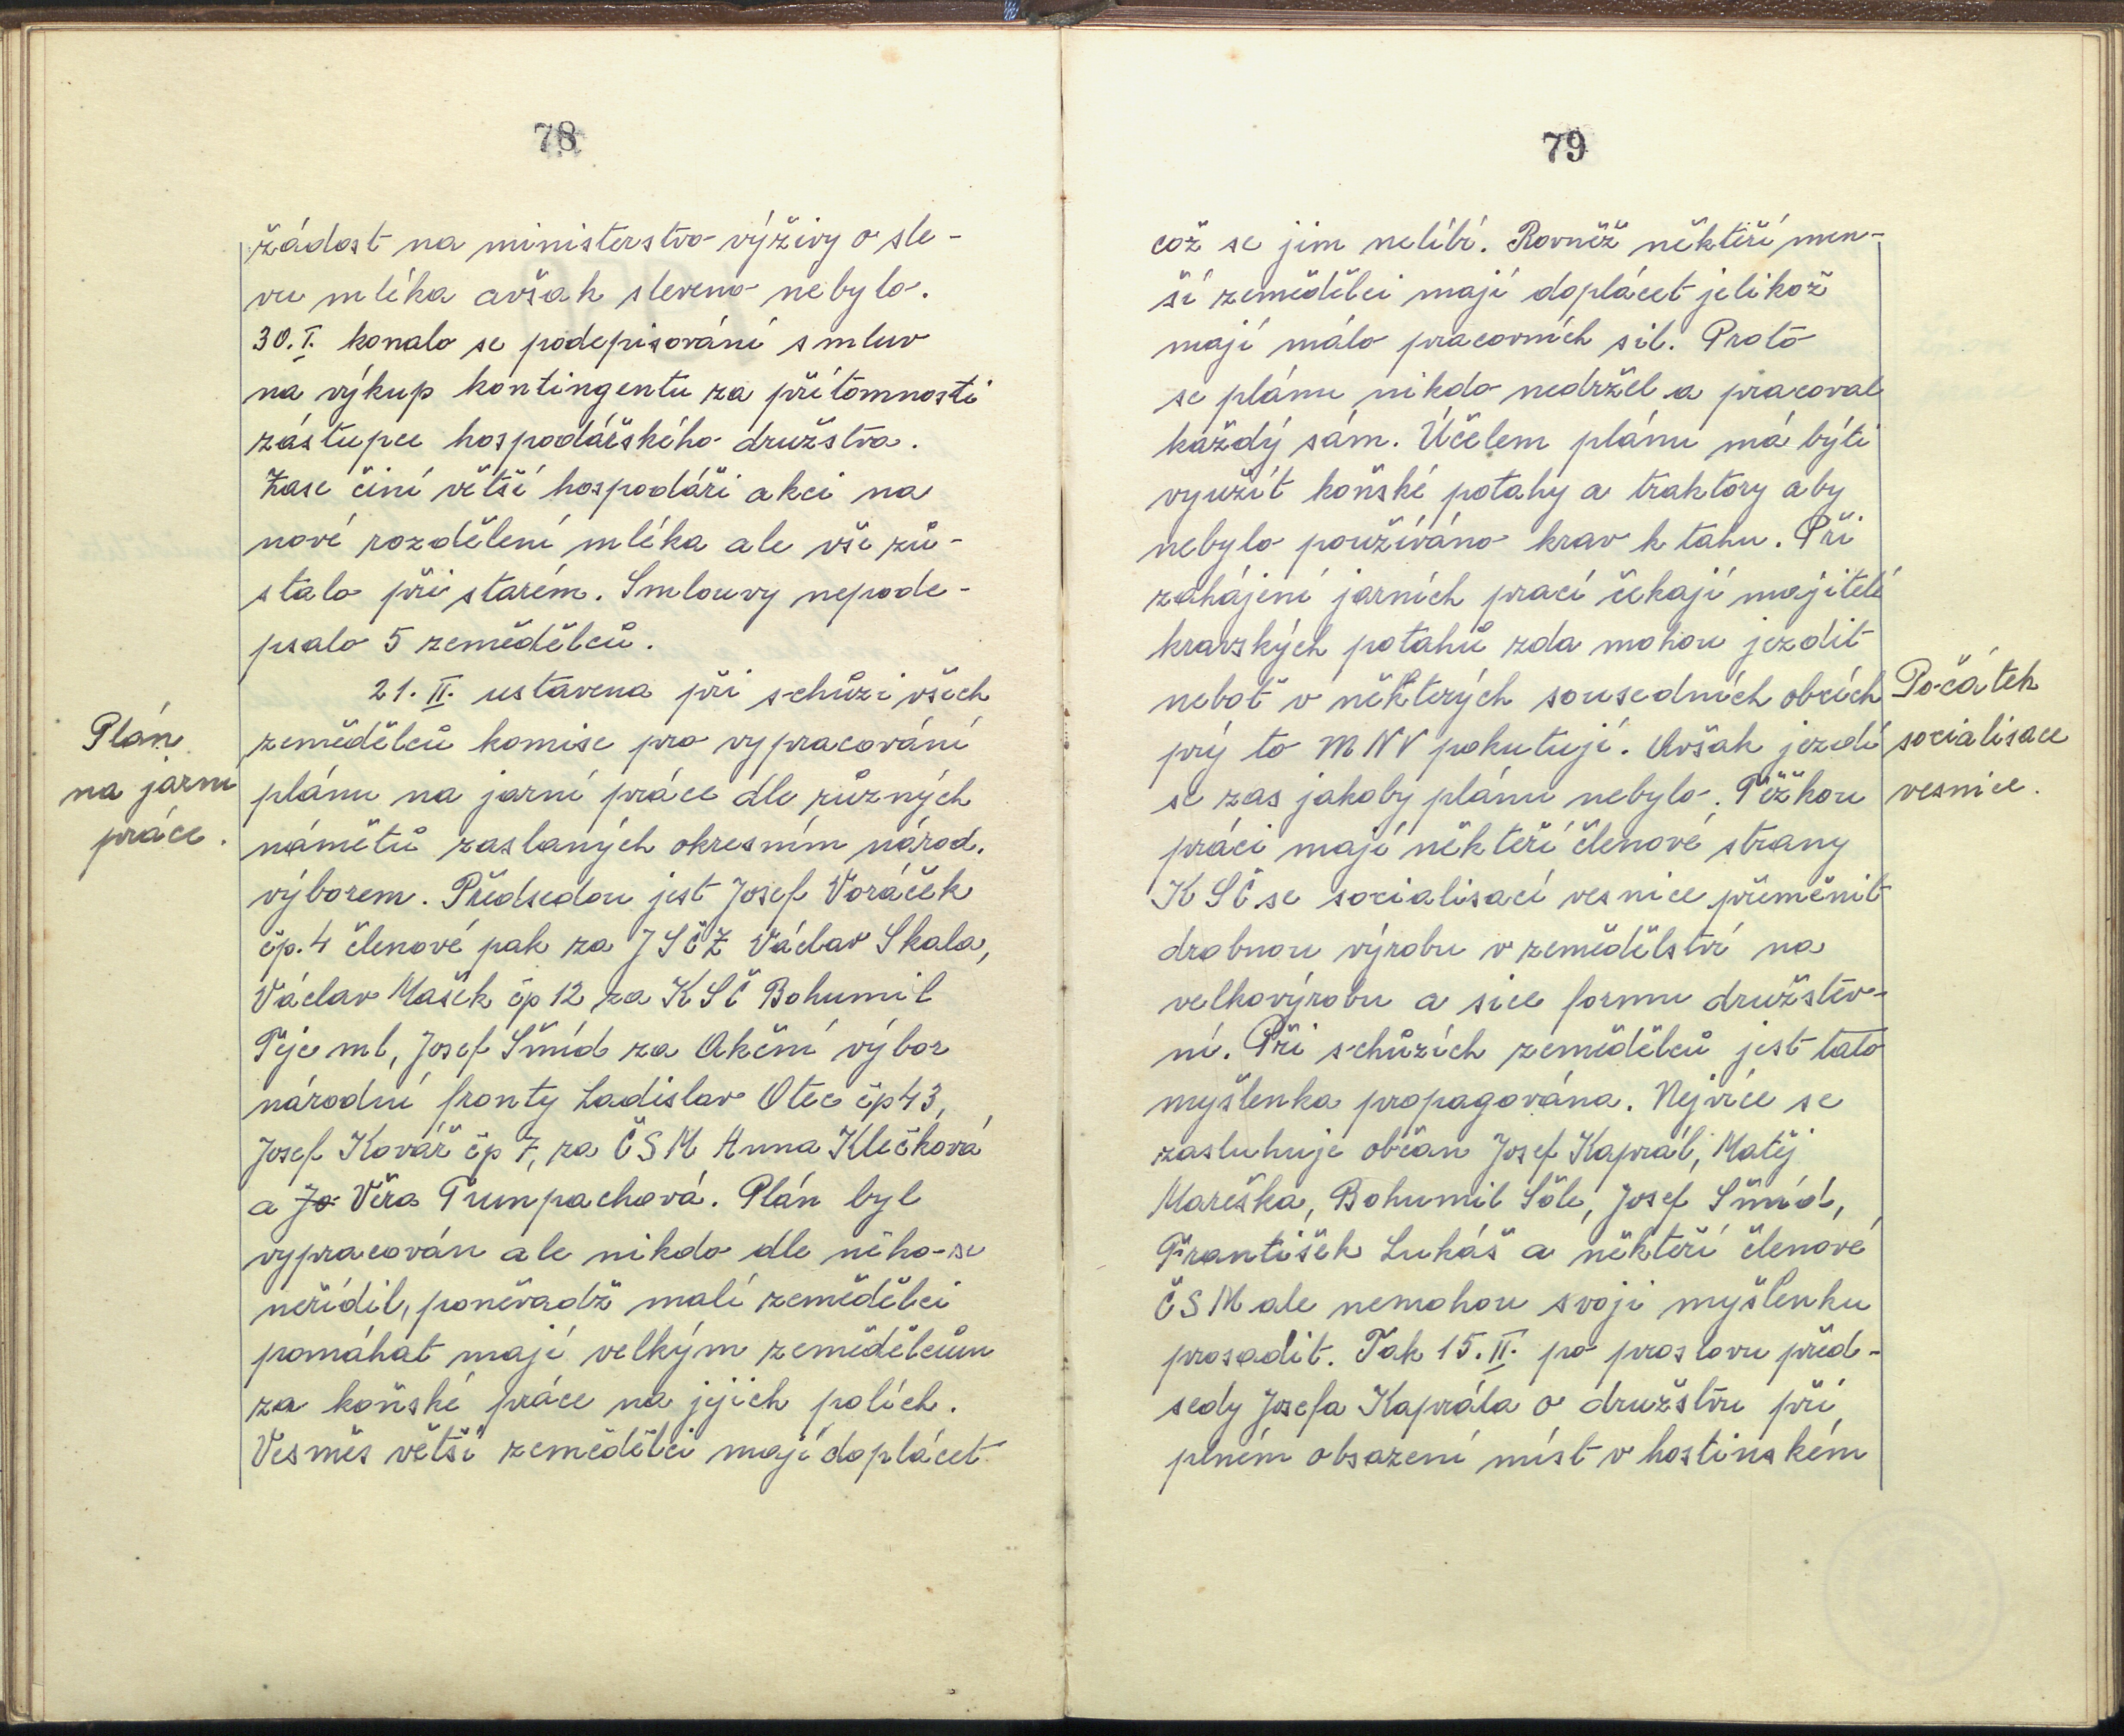 78
žádost na ministerstvo výživy o sle-
vu mléka avšak sleveno nebylo.
30.I. konalo se podepisování smluv
na výkup kontingentu za přítomnosti
zástupce hospodářského družstva.
Zase činí větší hospodáři akci na
nové rozdělení mléka ale vše zů-
stalo při starém. Smlouvy nepode-
psalo 5 zemědělců.
21. II. ustavena při schůzi všech
Plán
na jarní
práce.
zemědělců komise pro vypracování
plánu na jarní práce dle různých
námětů zaslaných okresním národ.
výborem. Předsedou jest Josef Voráček
čp. 4 členové pak za JSČZ Václav Skala,
Václav Mašek čp 12 za KSČ Bohumil
Týc ml, Josef Šmíd za Akční výbor
národní fronty Ladislav Otec čp 43,
Josef Kovář čp 7, za ČSM Anna Klečková
a Jo Věra Tumpachová. Plán byl
vypracován ale nikdo dle něho se
neřídil, poněvadž malí zemědělci
pomáhat mají velkým zemědělcům
za koňské práce na jejich polích.
Vesměs větší zemědělci mají doplácet
79
což se jim nelíbí. Rovněž někteří men-
ší zemědělci mají doplácet jelikož
mají málo pracovních sil. Proto
se plánu nikdo nedržel a pracoval
každý sám. Účelem plánu má býti
využít koňské potahy a traktory aby
nebylo používáno krav k tahu. Při
zahájení jarních prací čekají majitelé
kravských potahů zda mohou jezdit
neboť v některých sousedních obcích
prý to MNV pokutují. Avšak jezdí
se zas jakoby plánu nebylo. Těžkou
Počátek
socialisace
vesnice.
práci mají někteří členové strany
KSČ se socialisací vesnice přeměnit
drobnou výrobu v zemědělství na
velkovýrobu a sice formu družstev-
ní. Při schůzích zemědělců jest tato
myšlenka propagována. Nejvíce se
zasluhuje občan Josef Kaprál, Matěj
Mareška, Bohumil Šóle, Josef Šmíd,
František Lukáš a někteří členové
ČSM ale nemohou svoji myšlenku
prosadit. Tak 15. II. po proslovu před-
sedy Josefa Kaprála o družstvu při
plném obsazení míst v hostinském